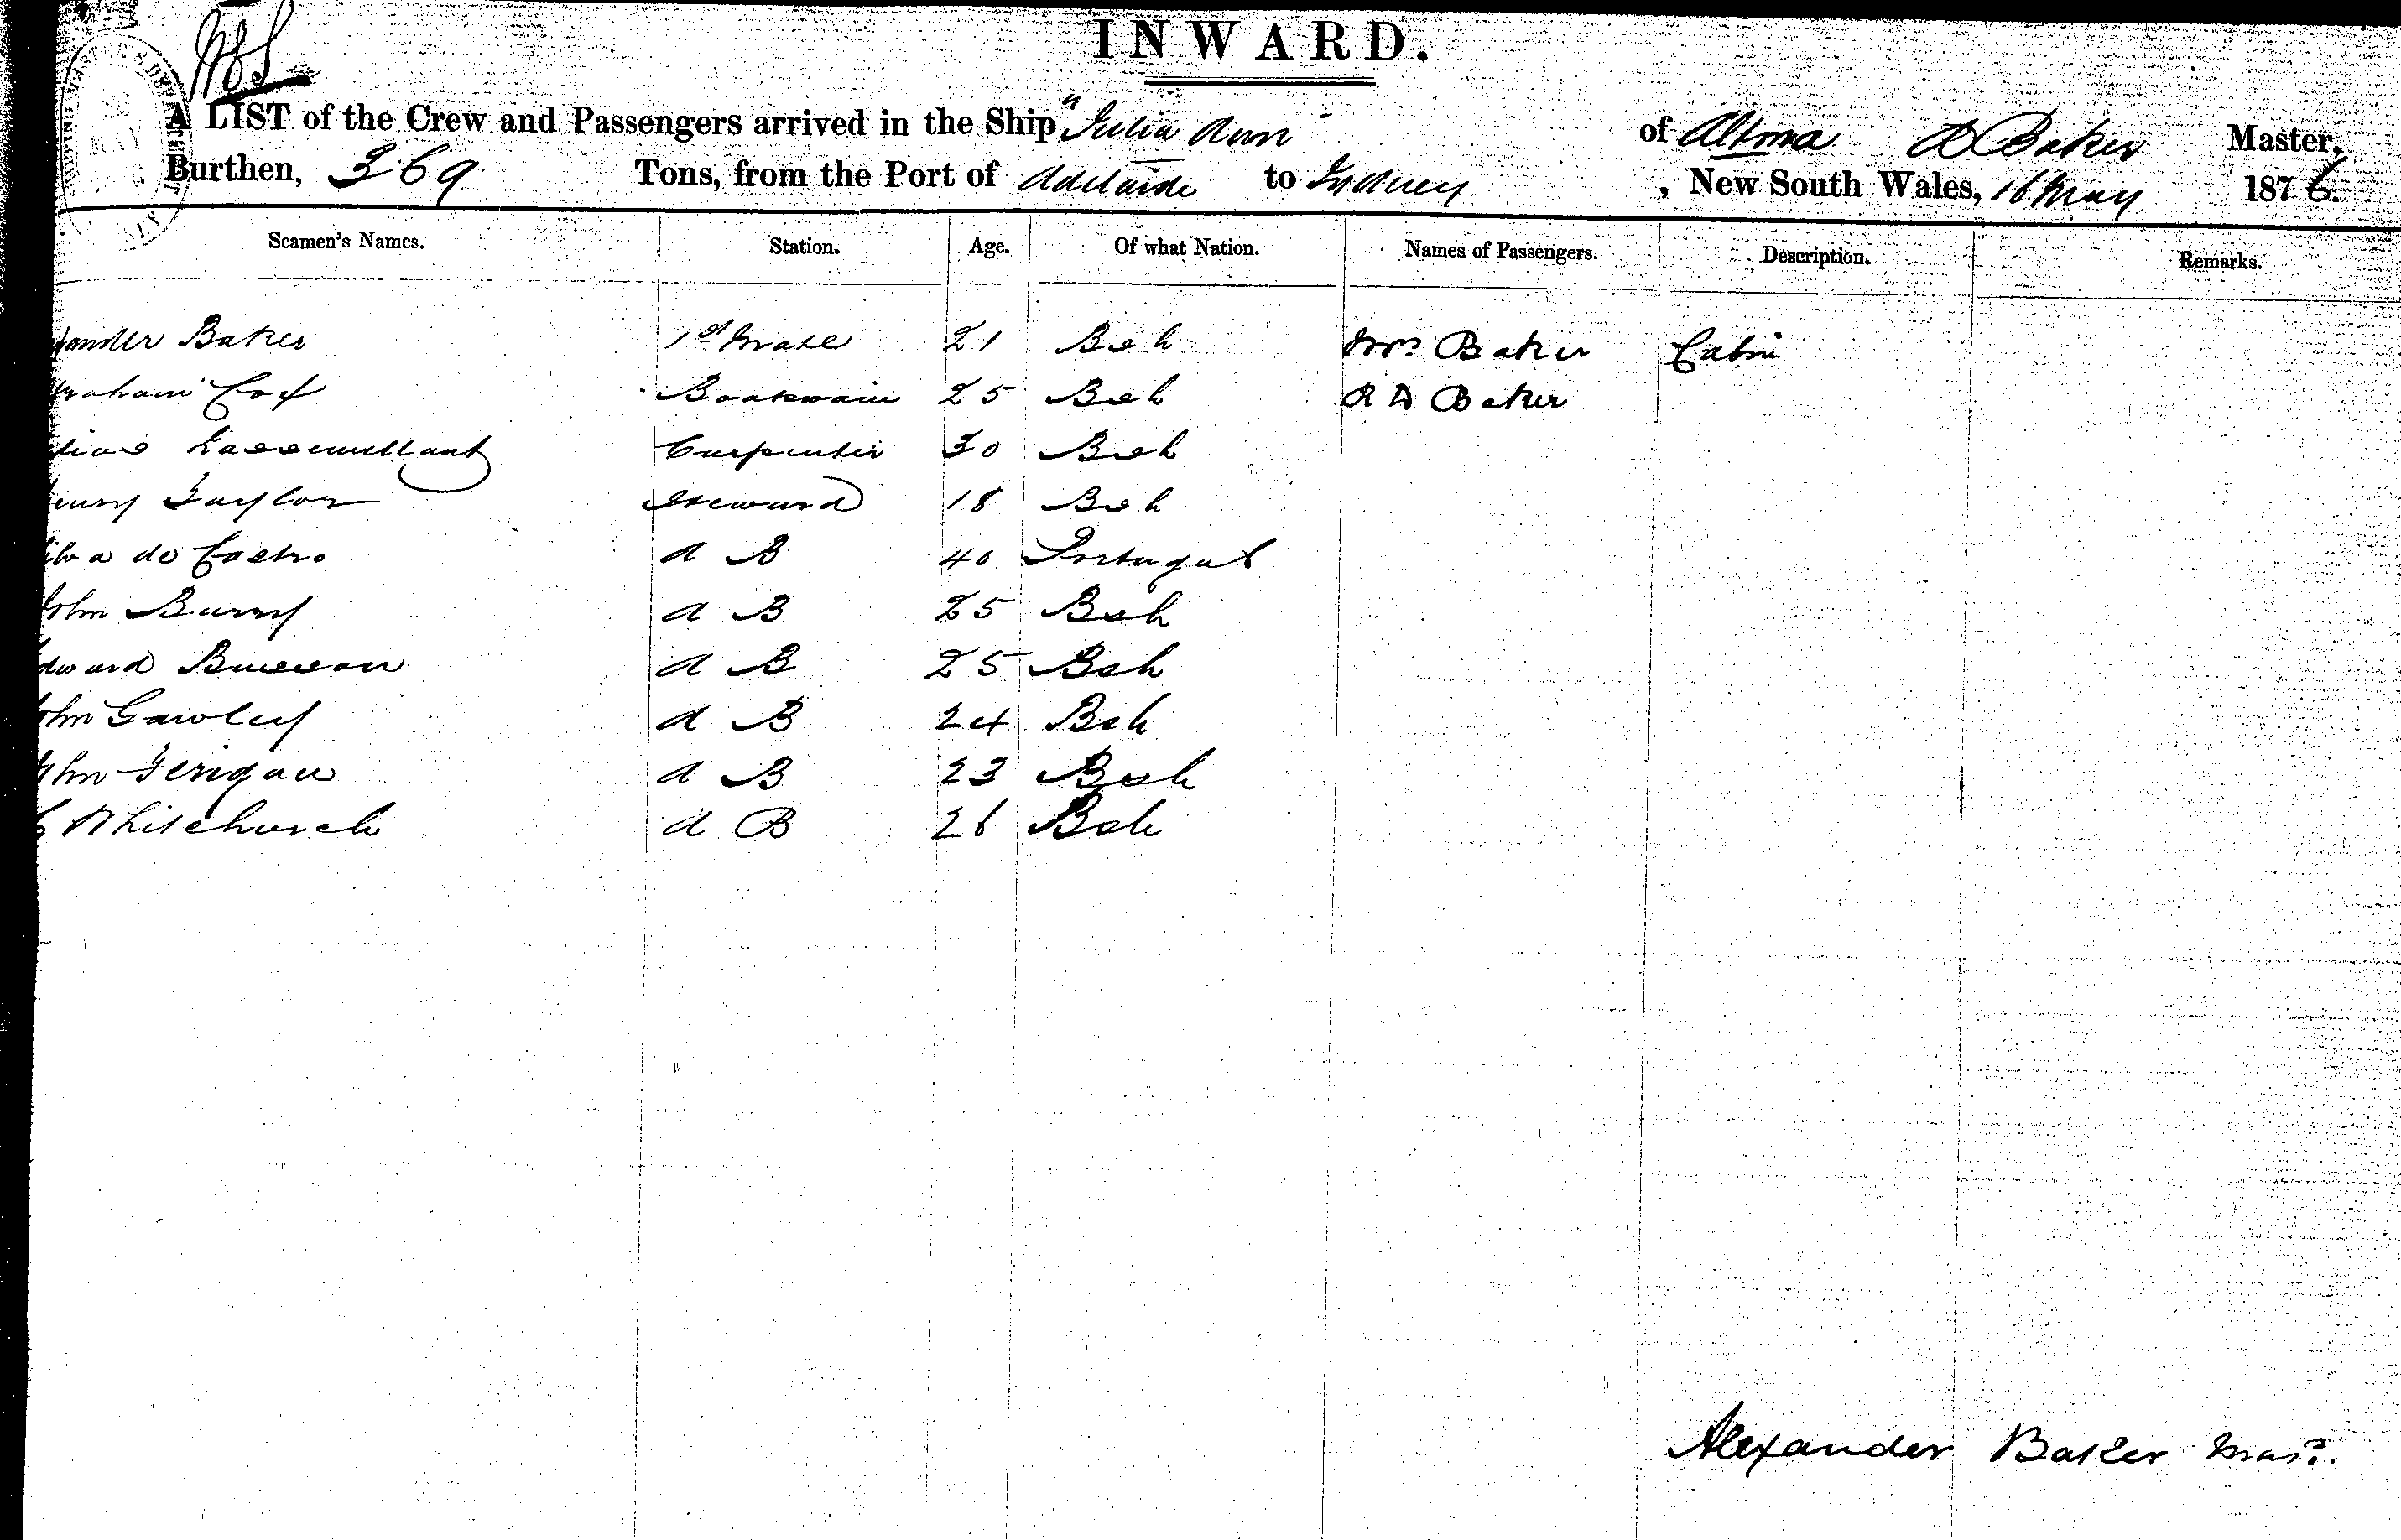 INWARD.
A LIST of the Crew and Passengers arrived in the Ship "Julia Ann" of Altona A Baker Master,
Burthen, 369 Tons, from the Port of Adelaide to Sydney, New South Wales, 16 May 1876.
Seamen's Names. Station. Age. Of what Nation. Names of Passengers. Description. Remarks.
xander Baker 1st Mate 21 Bsh Mrs Baker Cabin
braham Cox Boatswain 25 Bsh A D Baker
Carpenter 30 Bsh
enry Taylor Steward 18 Bsh
ilva de Castro A B 40 Portugal
John Burry A B 25 Bsh
dward A B 25 Bsh
ohn Gawley A B 24 Bsh
ohn A B 23 Bsh
Whitchurch A B 26 Bsh
Alexander Baker Mas.